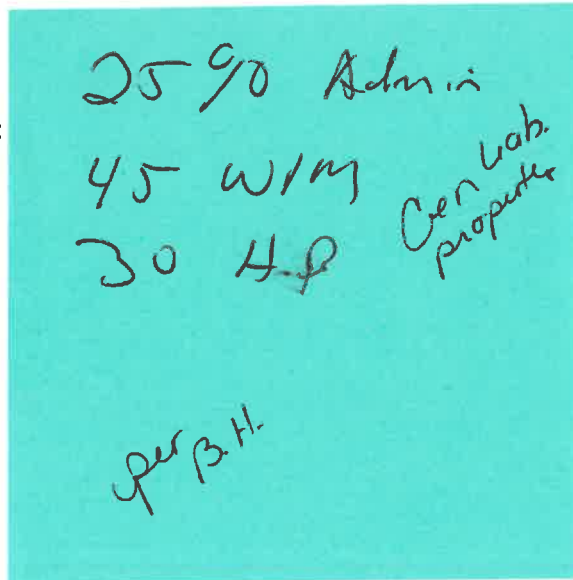 25% Admin
45 W/M
30 H.P
Gen Liab.
properties
per B.H.